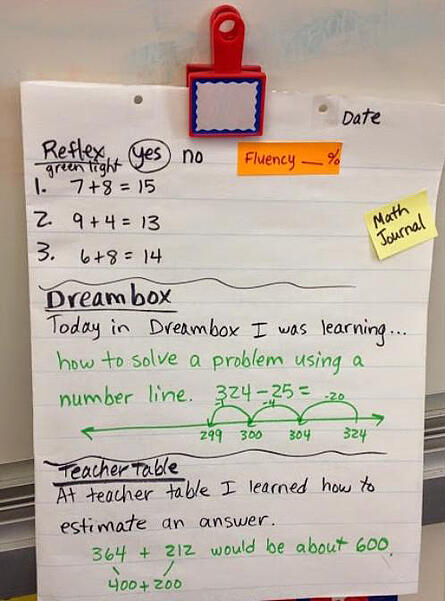 Date
Reflex yes no
green light
Fluency __ %
1. 7+8 = 15
2. 9+4 = 13
3. 6+8 = 14
Math
Journal
Dreambox
Today in Dreambox I was learning...
how to solve a problem using a
number line. 324-25=
-1 -4 -20
299 300 304 324
Teacher Table
At teacher table I learned how to
estimate an answer.
364 + 212 would be about 600.
400+200